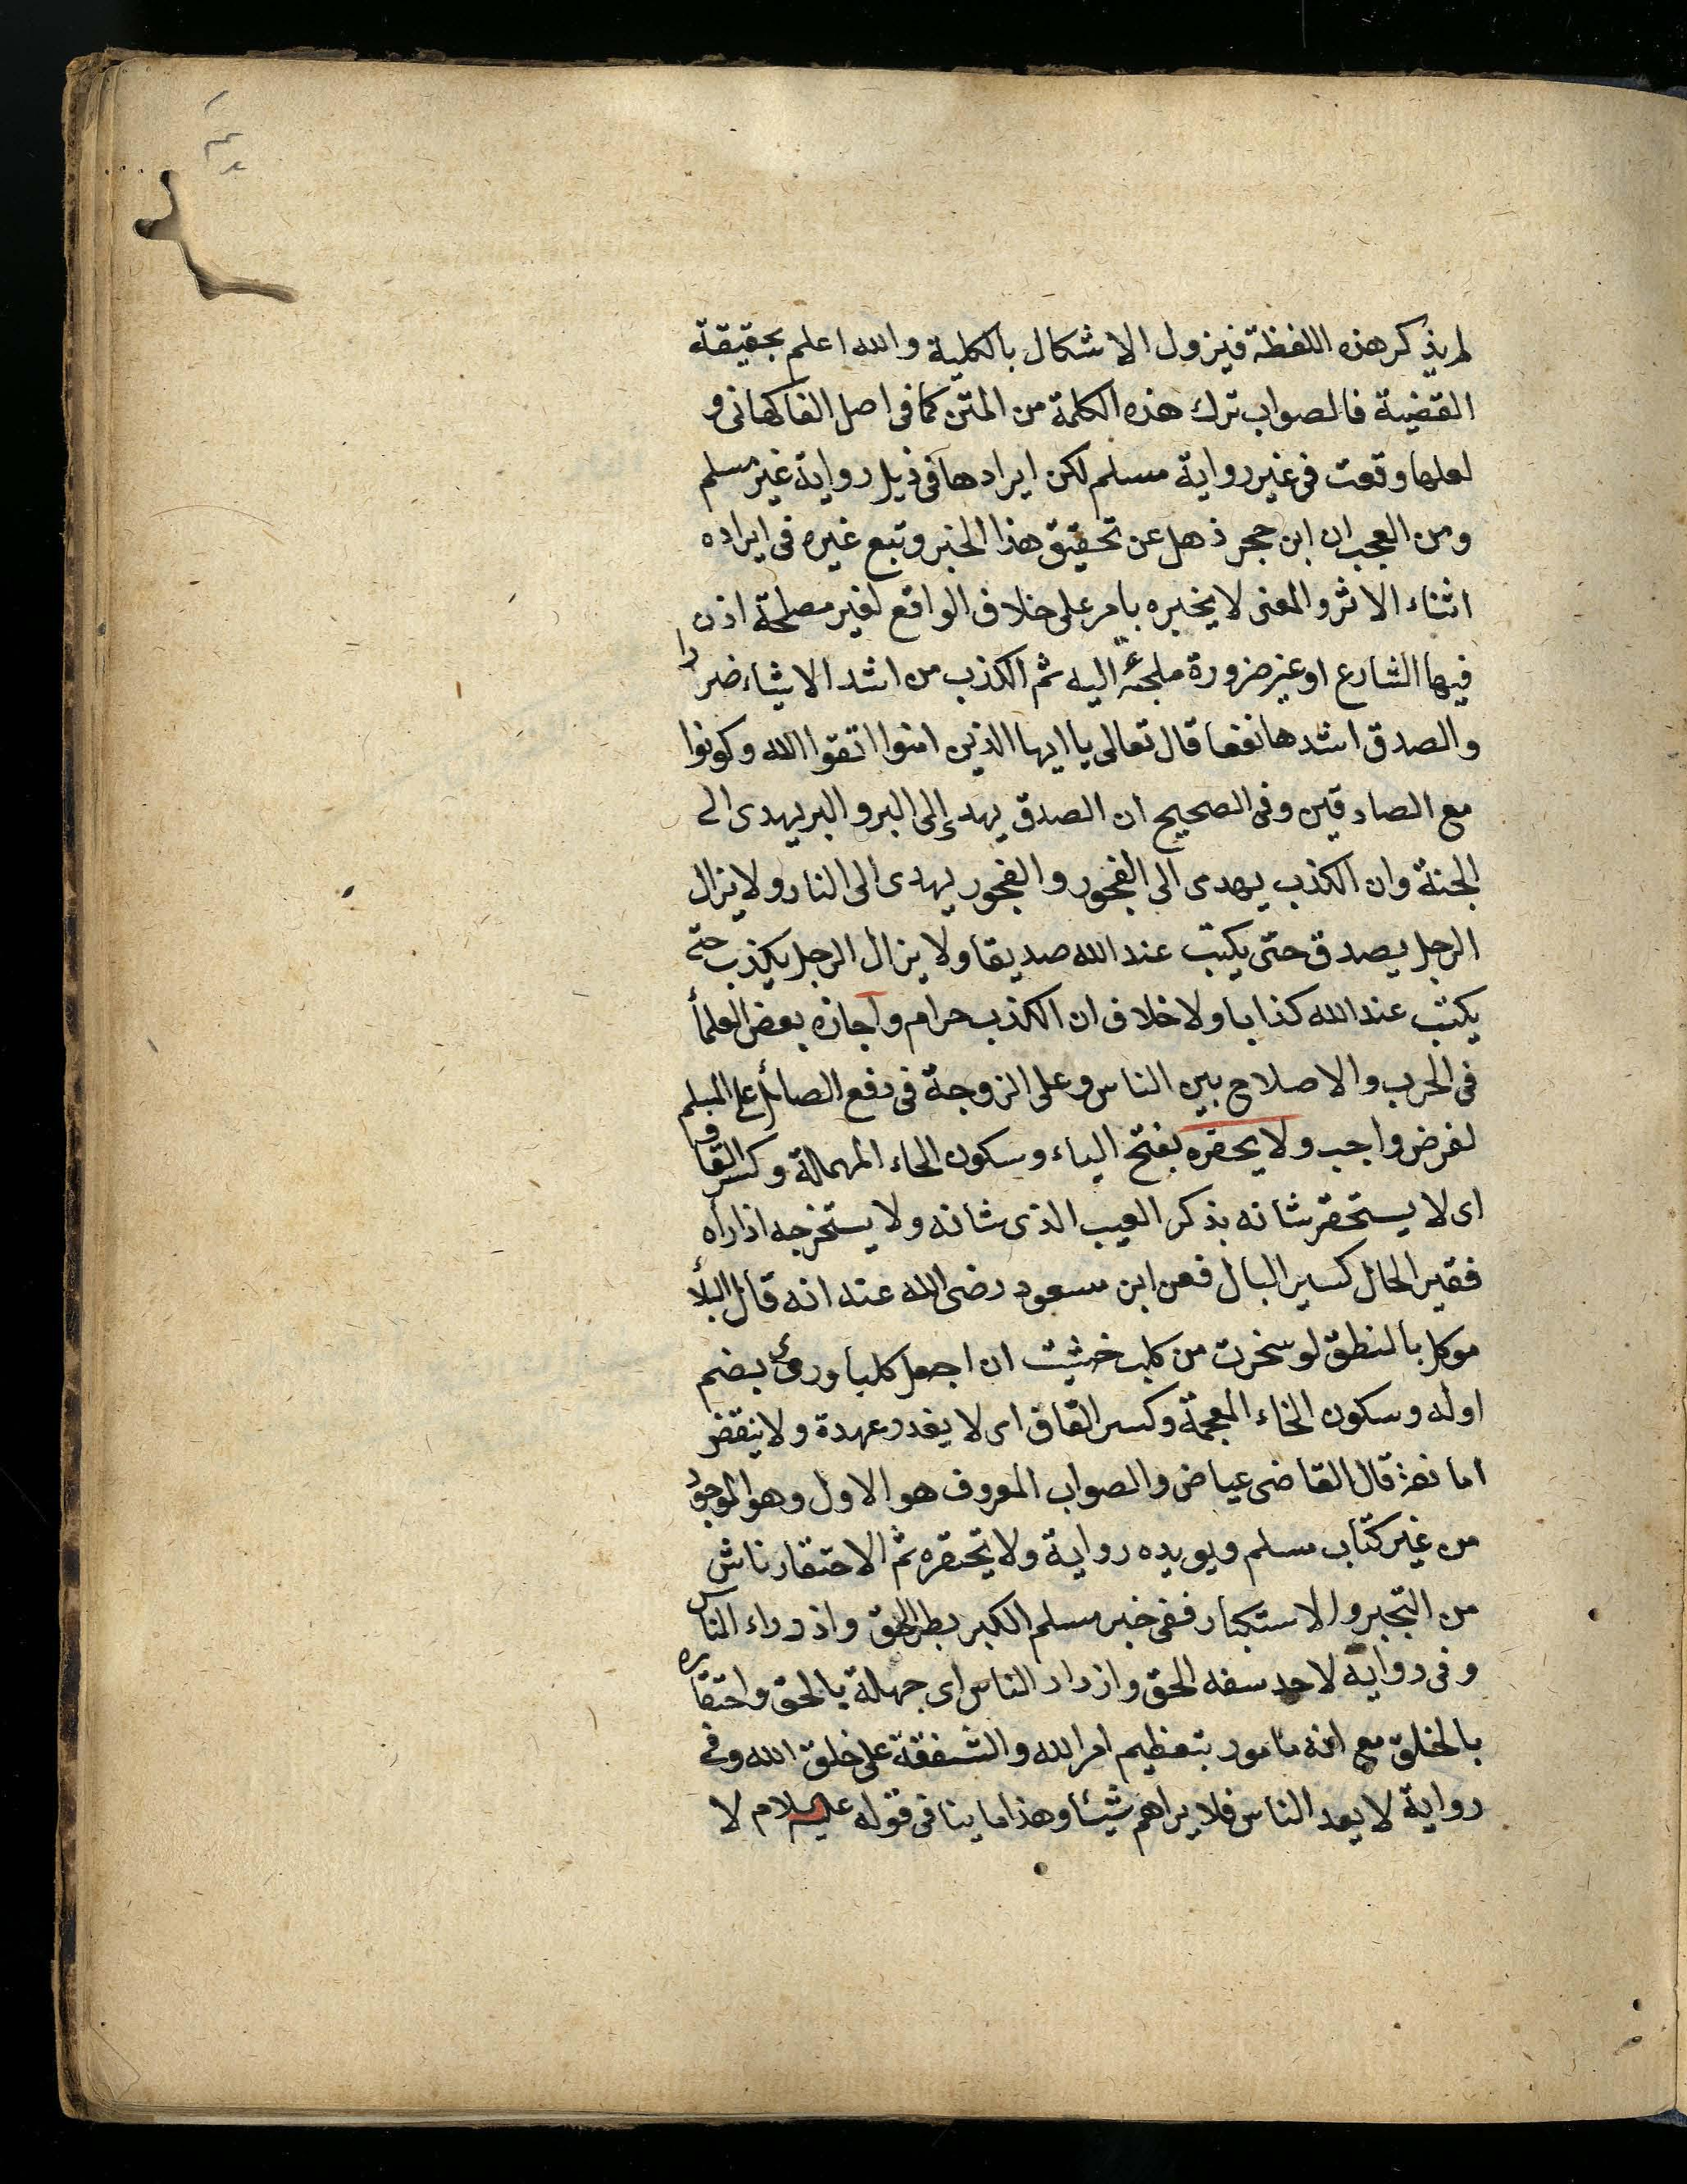 لم يذكر هذه اللفظة فيزول الاشكال بالكلية والله اعلم بحقيقة
القضية فالصواب ترك هذه الكلمة من المتن كما في اصل الفاكهاني و
لعلها وقعت في غير رواية مسلم لكن ايرادها في ذيل رواية غير مسلم
ومن العجب ان ابن حجر ذهل عن تحقيق هذا الخبر وتبع غيره في ايراده
اثناء الاثر والمعنى لا يخبره بامر على خلاف الواقع لغير مصلحة اذن
فيها الشارع او غير ضرورة ملجئة اليه ثم الكذب من اشد الاشياء ضررا
والصدق اشدها نفعا قال تعالى يا ايها الذين امنوا اتقوا الله وكونوا
مع الصادقين وفي الصحيح ان الصدق يهدى الى البر والبر يهدى الى
الجنة وان الكذب يهدى الى الفجور والفجور يهدى الى النار ولا يزال
الرجل يصدق حتى يكتب عند الله صديقا ولا يزال الرجل يكذب حتى
يكتب عند الله كذابا ولا خلاف ان الكذب حرام واجازه بعض العلماء
في الحرب والاصلاح بين الناس وعلى الزوجة في دفع الصائل على المسلم
لغرض واجب ولا يحقره بفتح الياء وسكون الحاء المهملة وكسر القاف
اى لا يستحقر شانه بذكر العيب الذى شانه ولا يستخرجه اذا راه
فقير الحال كسير البال فعن ابن مسعود رضى الله عنه انه قال البلأ
موكل بالمنطق لو سخرت من كلب خشيت ان اجعل كلبا وروى بضم
اوله وسكون الخاء المعجمة وكسر القاف اى لا يغدر عهدة ولا ينقض
امانته قال القاضى عياض والصواب المعروف هو الاول وهو الموجود
من غير كتاب مسلم ويويده رواية ولا يحتقره ثم الاحتقار ناش
من التجبر والاستكبار ففي خبر مسلم الكبر بطر الحق وازدراء الناس
وفي رواية لاحمد سفه الحق وازدراء الناس اى جهالة بالحق واحتقاره
بالخلق مع انه مامور بتعظيم امر الله والشفقة على خلق الله وفي
رواية لا يعد الناس فلا يراهم شيئا وهذا ما ينافى قوله عليه السلام لا